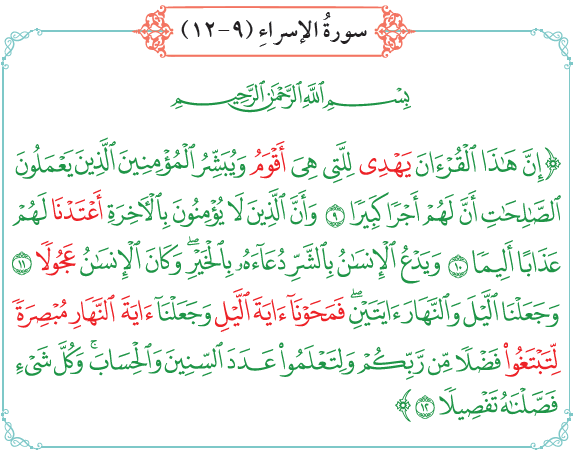 سورةُ الإسراءِ (٩-١٢)
بِسْمِ ٱللَّهِ ٱلرَّحْمَٰنِ ٱلرَّحِيمِ
﴿إِنَّ هَٰذَا ٱلْقُرْءَانَ يَهْدِى لِلَّتِى هِىَ أَقْوَمُ وَيُبَشِّرُ ٱلْمُؤْمِنِينَ ٱلَّذِينَ يَعْمَلُونَ
ٱلصَّٰلِحَٰتِ أَنَّ لَهُمْ أَجْرًا كَبِيرًا ٩ وَأَنَّ ٱلَّذِينَ لَا يُؤْمِنُونَ بِٱلْأَخِرَةِ أَعْتَدْنَا لَهُمْ
عَذَابًا أَلِيمًا ١٠ وَيَدْعُ ٱلْإِنسَٰنُ بِٱلشَّرِّ دُعَآءَهُۥ بِٱلْخَيْرِۖ وَكَانَ ٱلْإِنسَٰنُ عَجُولًا ١١
وَجَعَلْنَا ٱلَّيْلَ وَٱلنَّهَارَ ءَايَتَيْنِۖ فَمَحَوْنَآ ءَايَةَ ٱلَّيْلِ وَجَعَلْنَآ ءَايَةَ ٱلنَّهَارِ مُبْصِرَةً
لِّتَبْتَغُوا۟ فَضْلًا مِّن رَّبِّكُمْ وَلِتَعْلَمُوا۟ عَدَدَ ٱلسِّنِينَ وَٱلْحِسَابَۚ وَكُلَّ شَىْءٍ
فَصَّلْنَٰهُ تَفْصِيلًا ١٢﴾